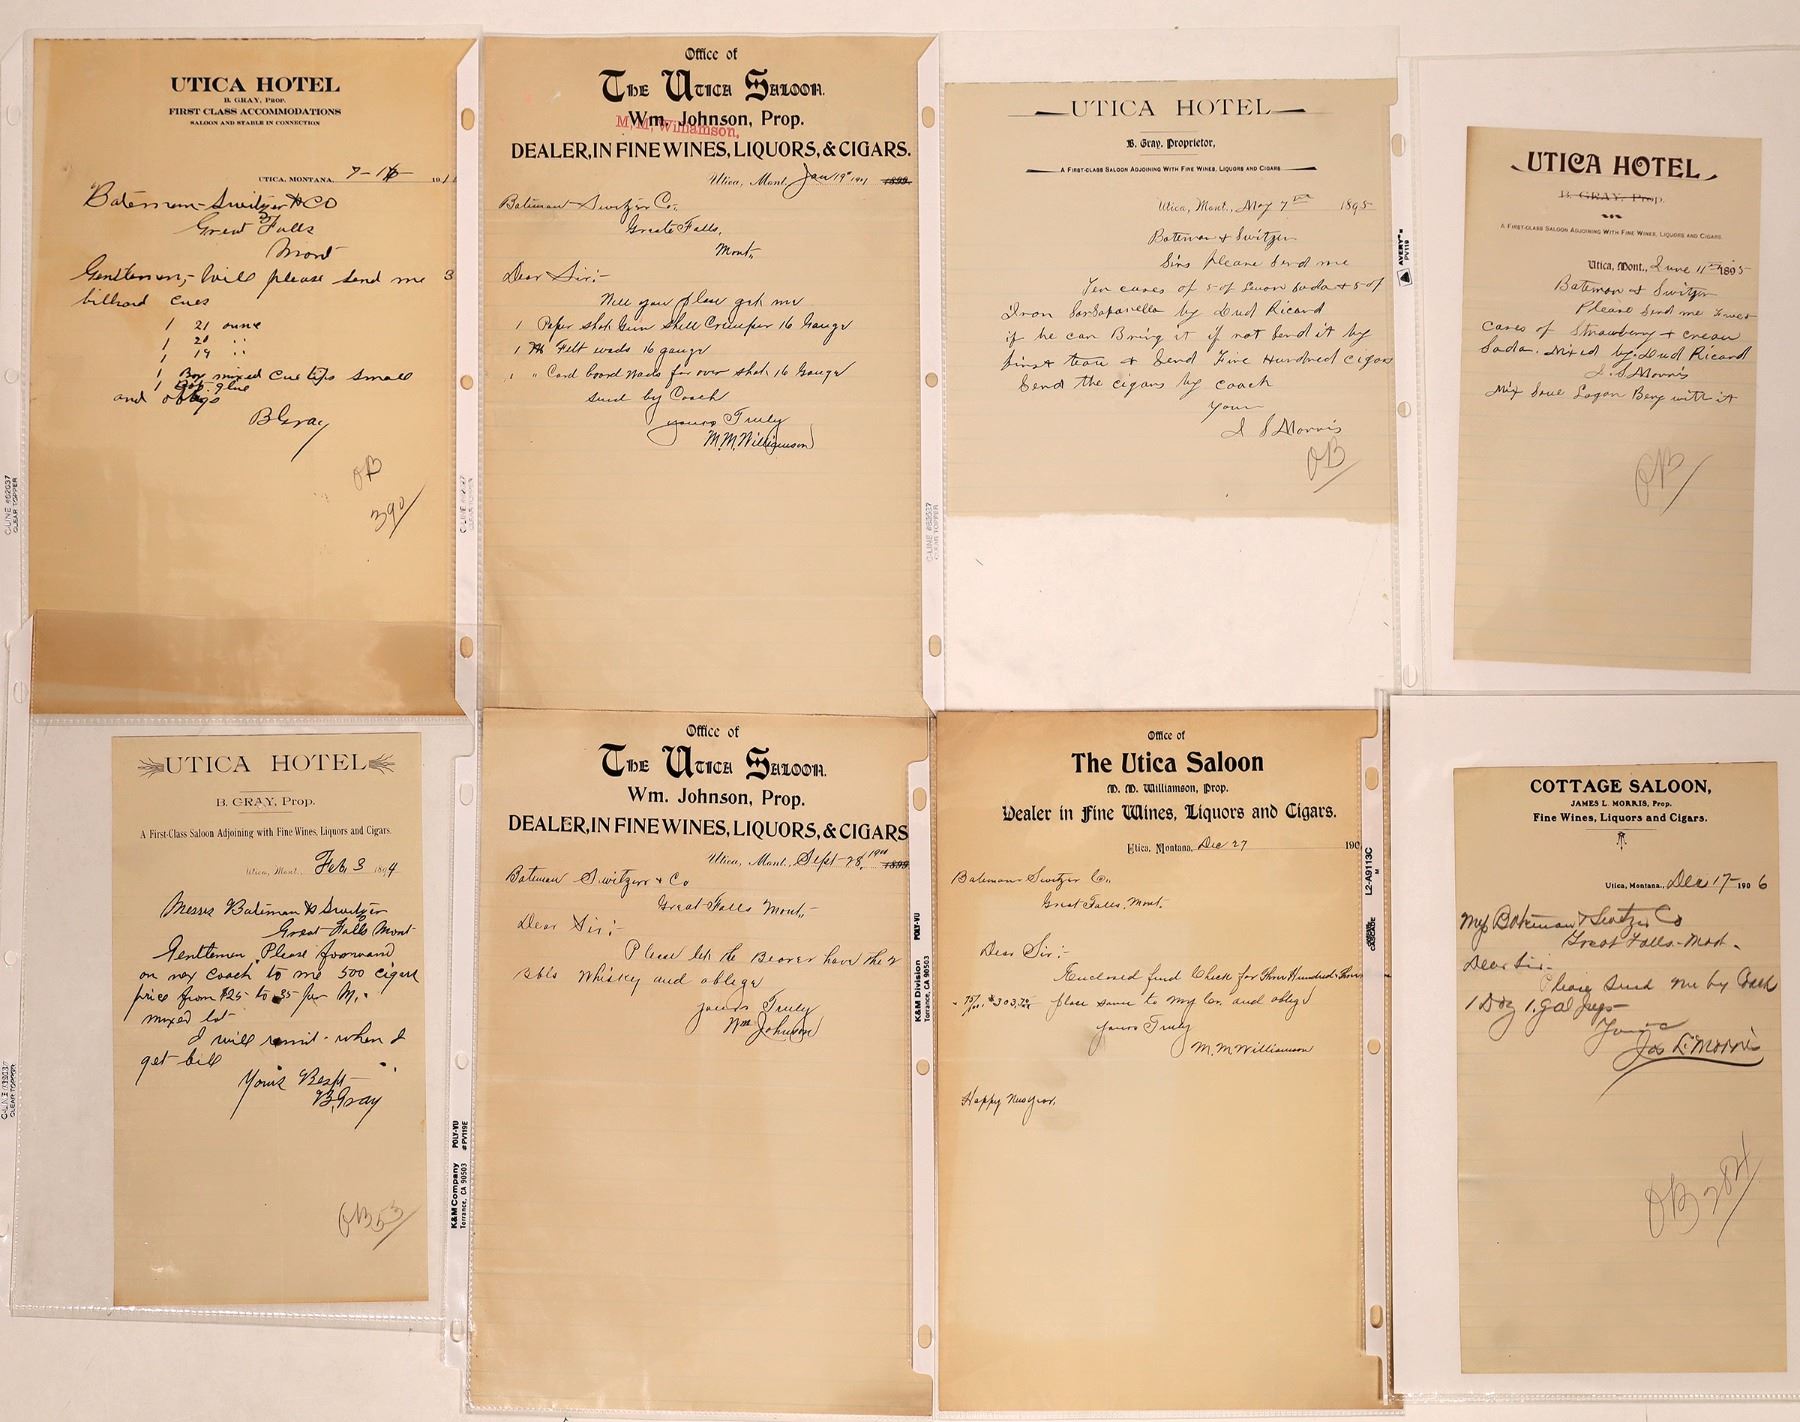 UTICA HOTEL
B. GRAY, PROP.
FIRST CLASS ACCOMMODATIONS
SALOON AND STABLE IN CONNECTION
UTICA, MONTANA, 191
Bateman-Switzer & CO
Great Falls
Mont
Gentlemen, Will please send me 3
billiard cues
1 21 ounce
1 20 "
1 19 "
1 Box mixed Cue tips small
1 glue
and
B Gray
OB
390/
Office of
THE UTICA SALOON.
Wm. Johnson, Prop.
M. M. Williamson,
DEALER, IN FINE WINES, LIQUORS, & CIGARS.
Utica, Mont. Jan 19" 1901 1899.
Bateman Switzer Co.,
Greate Falls,
Mont.
Dear Sir:-
Will you please get me
1 Paper shot Gun Shell Crimper 16 Gauge
1 M Felt wads 16 gauge
1 " Card board wads for over shot 16 Gauge
send by Coach
yours Truly
M.M. Williamson
UTICA HOTEL
B. Gray, Proprietor,
A FIRST-CLASS SALOON ADJOINING WITH FINE WINES, LIQUORS AND CIGARS
Utica, Mont., May 7th 1895
Bateman & Switzer
Sirs please send me
Ten cases of 5 of Lemon Soda & 5 of
Iron Sarsaparella by Dud Ricard
if he can Bring it if not send it by
first team & Send Five Hundred cigars
Send the cigars by coach
Yours
J S Morris
OB
UTICA HOTEL
B. GRAY, Prop.
A FIRST-CLASS SALOON ADJOINING WITH FINE WINES, LIQUORS AND CIGARS.
Utica, Mont., June 11th 1895
Bateman & Switzer
Please send me
cases of Strawberry & cream
Soda. Mixed by Dud Ricard
J. S Morris
Mix Some Logan Bery with it
OB
UTICA HOTEL
B. GRAY, Prop.
A First-Class Saloon Adjoining with Fine Wines, Liquors and Cigars.
Utica, Mont., Feb 3 1894
Messrs Bateman & Switzer
Great Falls Mont
Gentlemen, Please forward
on nex coach to me 500 cigars
price from $25 to 35 per M.
mixed lot
I will remit when I
get bill
Yours Respt
B. Gray
OB 53
Office of
THE UTICA SALOON.
Wm. Johnson, Prop.
DEALER, IN FINE WINES, LIQUORS, & CIGARS
Utica, Mont., Sept 28, 1900 1899
Bateman Switzer & Co
Great Falls Mont,
Dear Sir:-
Please let the Bearer have the 2
Bbls Whiskey and oblige
yours Truly
Wm Johnson
Office of
The Utica Saloon
M. M. Williamson, Prop.
Dealer in Fine Wines, Liquors and Cigars.
Utica, Montana, Dec 27 190
Bateman Switzer Co.,
Great Falls, Mont.
Dear Sir:-
Enclosed find Check for Three Hundred & Three
& 75/100 $303.75 place same to my Cr. and oblige
yours Truly
M. M Williamson
Happy New year,
COTTAGE SALOON,
JAMES L. MORRIS, Prop.
Fine Wines, Liquors and Cigars.
Utica, Montana., Dec 17- 1906
Mss Bateman & Switzer Co
Great Falls-Mont-
Dear Sir-
Please send me by Coach
1 Doz 1 gal Jugs-
Yours
Jas L. Morris
OB 284
C-LINE #62037
CLEAR TOPPER
AVERY®
PV119
K&M Company POLY-VU
Torrance, CA 90503 #PV119E
K&M Division POLY-VU
Torrance, CA 90503
L2-A9113C